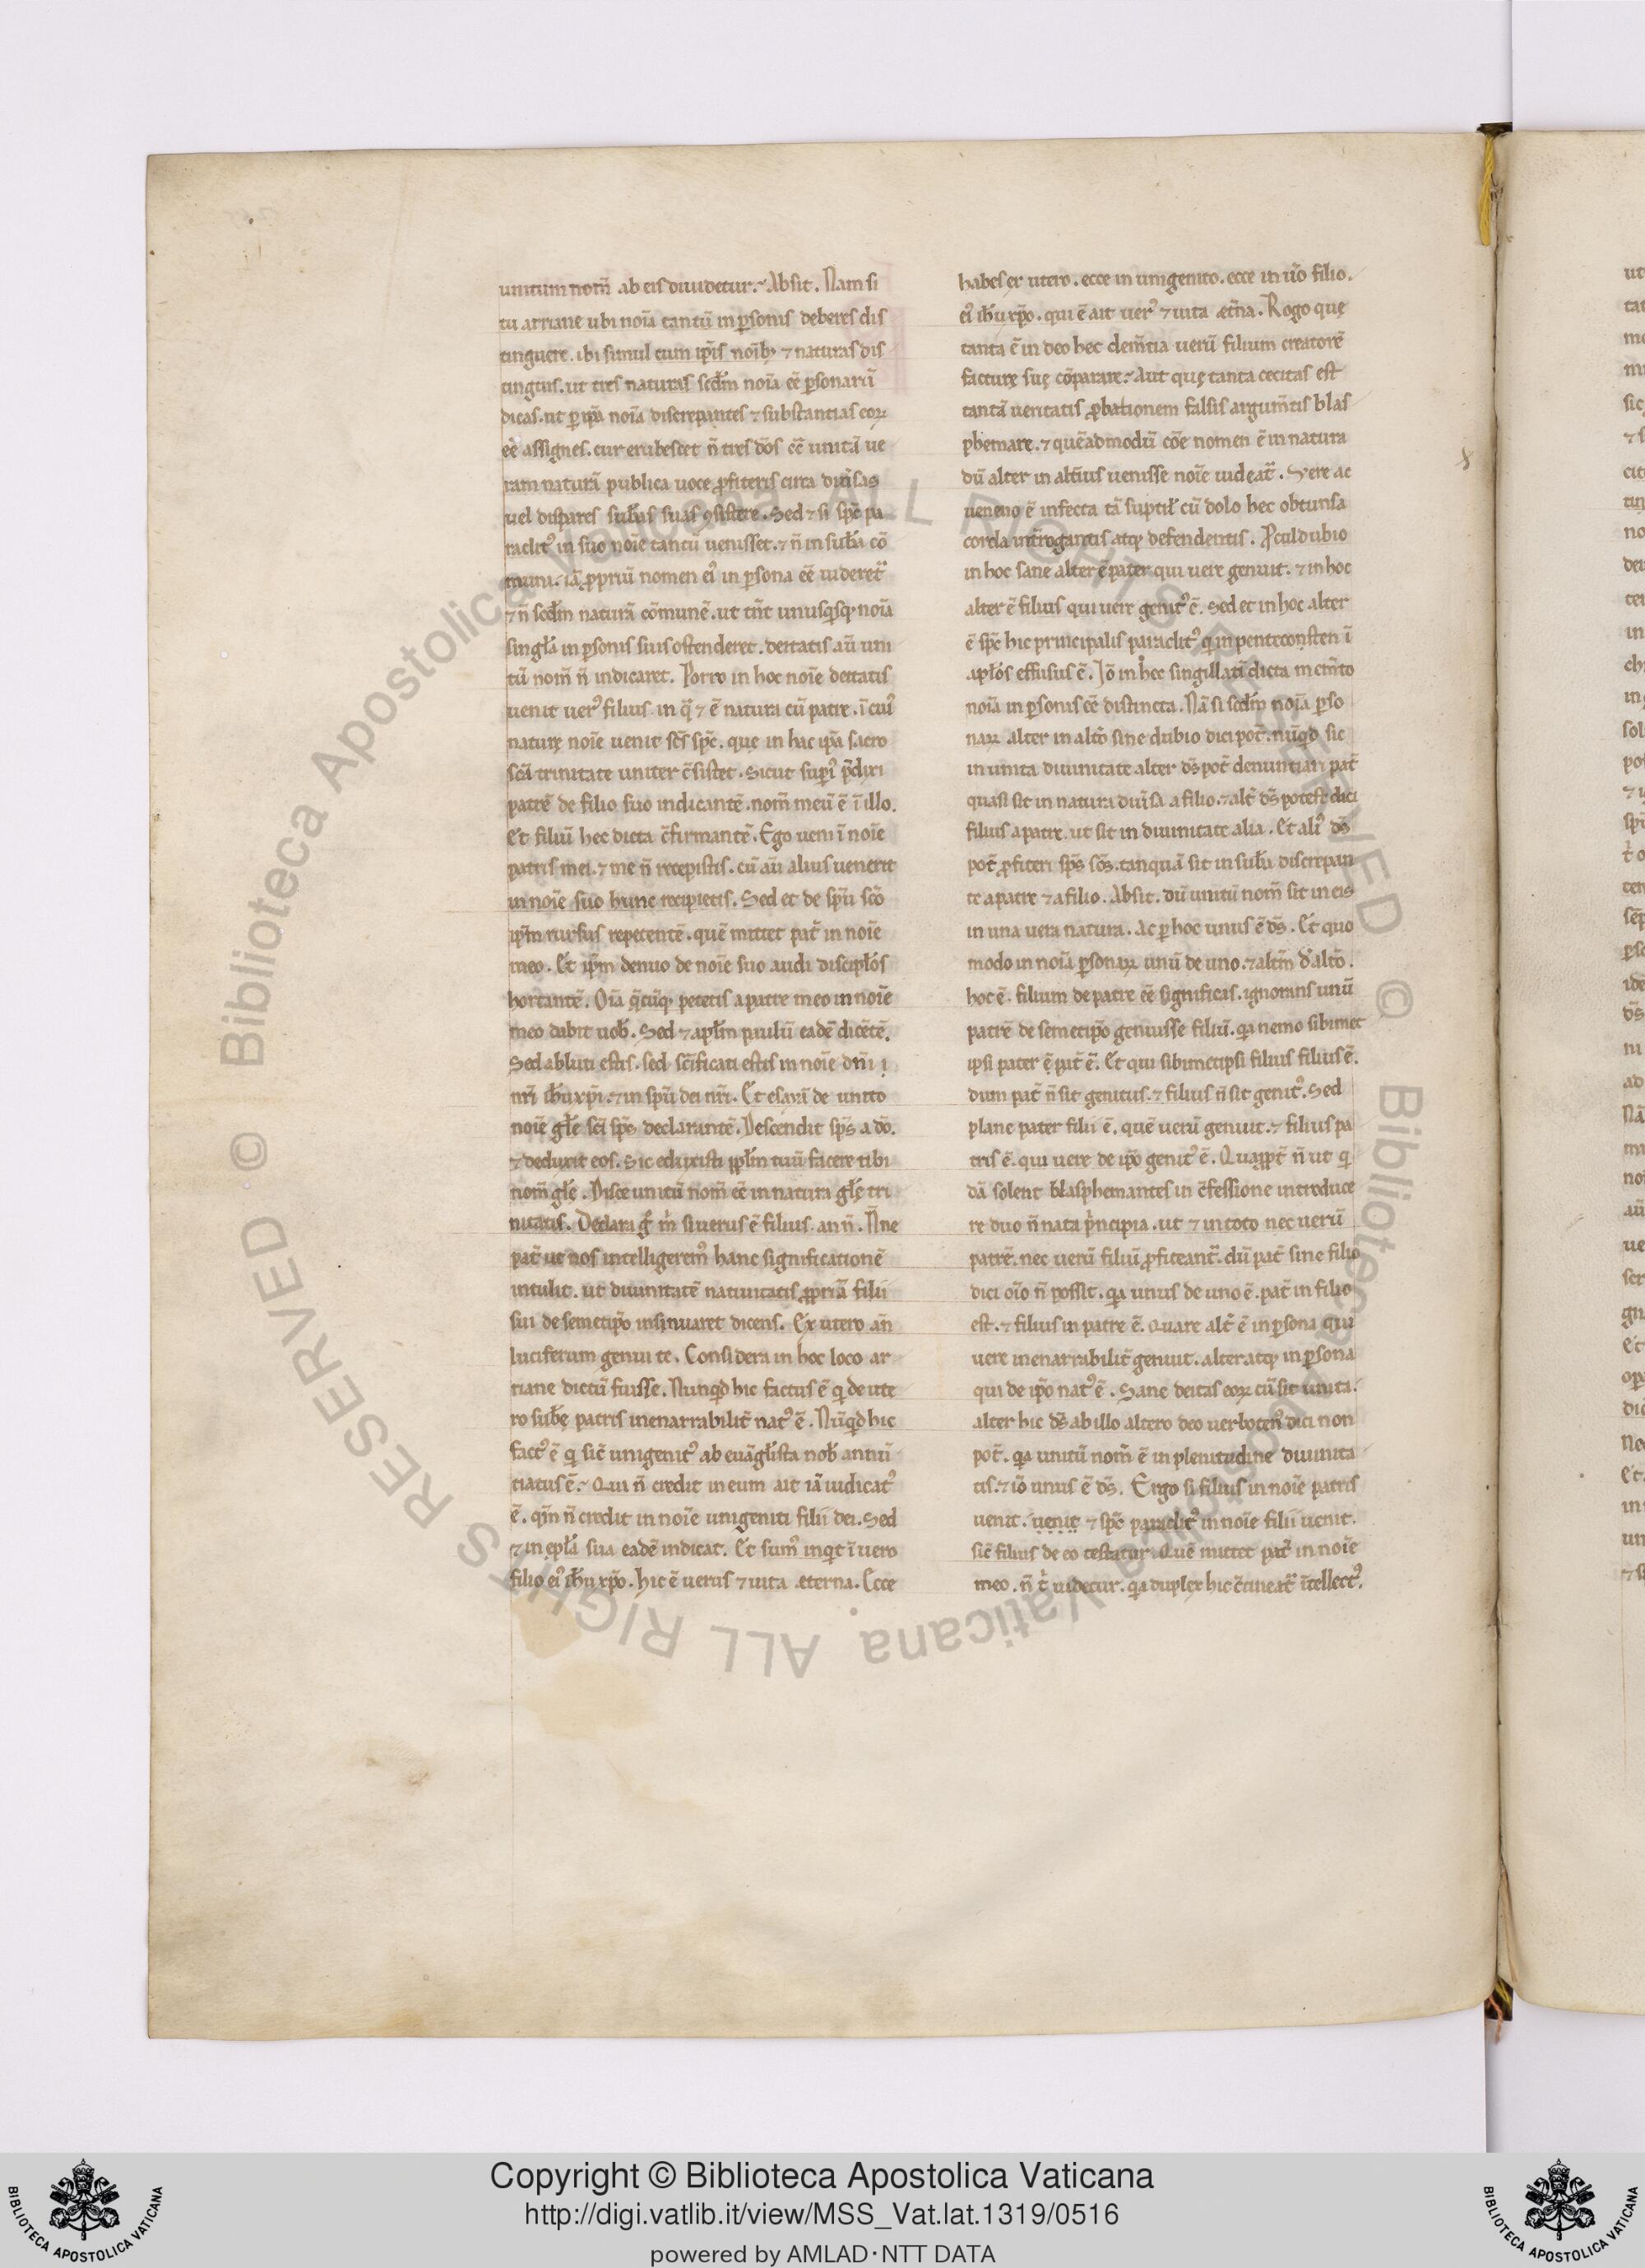 unitum nom̃ ab eis diuidetur.~ Absit. Nam si
tu arriane ubi noĩa tantũ in ꝑsonis deberes dis
tinguere. ibi simul cum ip̃is noĩbꝫ ⁊ naturas dis
tinguis. ut tres naturas scđm noĩa eẽ ꝑsonarũ
dicas. ut ꝑ ip̃a noĩa discrepantes ⁊ substantias eoꝝ
eẽ assignes. cur erubescet ñ tres dõs eẽ unitã ue
ram naturã publica uoce ꝓfiteris circa diũsas
uel dispares sub̃as suas ꝯsistere. Sed ⁊ si sp̃c pa
raclitꝰ in suo noĩe tantũ uenisset. ⁊ ñ in sub̃a cõ
muni. iã ꝓpriũ nomen eiꝰ in ꝑsona eẽ uideret᷑
⁊ ñ scđm naturã cõmunẽ. ut tñt unusqˢqꝫ noĩa
singl̃a in ꝑsonis suis ostenderet. deitatis aũ uni
tũ nom̃ ñ indicaret. Porro in hoc noĩe deitatis
uenit uerꝰ filius in q̃ ⁊ ẽ natura cũ patre. ĩ cuiꝰ
naturę noĩe uenit sc̃s sp̃c. que in hac ip̃a sacro
sc̃a trinitate uniter c̃sistet. Sicut supiꝰ p̃dixi
patrẽ de filio suo indicantẽ. nom̃ meũ ẽ ĩ illo.
Et filiũ hec dicta c̃firmantẽ. Ego ueni ĩ noĩe
patris mei. ⁊ me ñ recepistis. cũ aũ alius uenerit
in noĩe suo hunc recipietis. Sed et de sp̃u sc̃o
ip̃m rursus repetentẽ. quẽ mittet pat̃ in noĩe
meo. Et ip̃m denuo de noĩe suo audi discipl̃os
hortantẽ. Oĩa q̃cũqꝫ petetis a patre meo in noĩe
meo dabit uob̃. Sed ⁊ apl̃m paulũ eadẽ dicẽtẽ.
Sed abluti estis. sed sc̃ificati estis in noĩe dñi
nr̃i ih̃u xp̃i. ⁊ in sp̃u dei nr̃i. Et esaiã de unito
noĩe gl̃e sc̃i sp̃s declarantẽ. Descendit sp̃s a dõ.
⁊ deduxit eos. Sic eduxisti ppl̃m tuũ facere tibi
nom̃ gl̃e. Disce unitũ nom̃ eẽ in natura gl̃ę tri
nitatis. Declara g̃ m̃ si uerus ẽ filius. an ñ. Ñne
pat̃ ut nos intelligeremꝰ hanc significationẽ
intulit. ut diuinitatẽ natiuitatis ꝓpriã filii
sui de semetip̃o insinuaret dicens. Ex utero añ
luciferum genui te. Considera in hoc loco ar
riane dictũ fuisse. Nunqͥd hic factus ẽ qͥ de ute
ro sub̃ę patris inenarrabilit̃ natꝰ ẽ. Nũqͥd hic
factꝰ ẽ qͥ sic̃ unigenitꝰ ab euãgl̃ista nob̃ annũ
tiatus ẽ.~ Qui ñ credit in eum ait iã iudicatꝰ
ẽ. qm̃ ñ credit in noĩe unigeniti filii dei. Sed
⁊ in epl̃a sua eadẽ indicat. Et sumꝰ inqͥt ĩ uero
filio eiꝰ ih̃u xp̃o. hic ẽ uerus ⁊ uita ęterna. Ecce
habes ex utero. ecce in unigenito. ecce in ũo filio.
eiꝰ ih̃u xp̃o. qui ẽ ait uerꝰ ⁊ uita ęt̃na. Rogo quę
tanta ẽ in deo hec clem̃tia uerũ filium creatorẽ
facturę suę cõparare.~ Aut quę tanta cecitas est
tantã ueritatis ꝓbationem falsis argum̃tis blas
phemare. ⁊ quẽadmodũ cõe nomen ẽ in natura
dũ alter in alt̃ius uenisse noĩe uideat᷑. Vere ac
ueneno ẽ infecta tã suptil̃ cũ dolo hec obtunsa
corda int̃rogantis atqꝫ defendentis. Ꝓculdubio
in hoc sane alter ẽ pater qui uere genuit. ⁊ in hoc
alter ẽ filius qui uere genitꝰ ẽ. Sed et in hoc alter
ẽ sp̃c hic principalis paraclitꝰ qͥ in penteconsten ĩ
apl̃os effusus ẽ. Iõ in hec singillatĩ dicta mem̃to
noĩa in ꝑsonis eẽ distincta. Nã si scđm noĩa ꝑso
naꝝ alter in alt̃o sine dubio dici pot̃. nũqͥd sic
in unita diuinitate alter dñs pot̃ denuntiari pat̃
quasi sit in natura diũsa a filio. ⁊ alt̃ dñs potest dici
filius a patre. ut sit in diuinitate alia. Et aliꝰ dñs
pot̃ ꝓfiteri sp̃s sc̃s. tanquã sit in sub̃a discrepan
te a patre ⁊ a filio. Absit. dũ unitũ nom̃ sit in eis
in una uera natura. Ac ꝑ hoc unus ẽ dñs. Et quo
modo in noĩa ꝑsonaꝝ unũ de uno. ⁊ alt̃m đ alt̃o.
hoc ẽ. filium de patre eẽ significas. ignorans unũ
patrẽ de semetip̃o genuisse filiũ. qͣ nemo sibimet
ipsi pater ẽ pat̃ ẽ. Et qui sibimetipsi filius filius ẽ.
dum pat̃ ñ sit genitus. ⁊ filius ñ sit genitꝰ. Sed
plane pater filii ẽ. quẽ uerũ genuit. ⁊ filius pa
tris ẽ. qui uere de ip̃o genitꝰ ẽ. Quapp̃t̃ ñ ut qͥ
dã solent blasphemantes in c̃fessione introduce
re duo ñ nata pͥncipia. ut ⁊ in toto nec uerũ
patrẽ. nec uerũ filiũ ꝓfiteant᷑. dũ pat̃ sine filio
dici oĩo ñ possit. qͣ unus de uno ẽ. pat̃ in filio
est. ⁊ filius in patre ẽ. Quare alt̃ ẽ in ꝑsona qui
uere inenarrabilit̃ genuit. alter atqꝫ in ꝑsona
qui de ip̃o natꝰ ẽ. Sane deitas eoꝝ cũ sit unita.
alter hic dñs ab illo altero deo uerbotenꝰ dici non
pot̃. qͣ unitũ nom̃ ẽ in plenitudine diuinita
tis. ⁊ iõ unus ẽ dñs. Ergo si filius in noĩe patris
uenit. uenit ⁊ sp̃c paraclitꝰ in noĩe filii uenit.
sic̃ filius de eo testatur. Quẽ mittet pat̃ in noĩe
meo. ñ uidetur. qͣ duplex hic c̃tineat᷑ ĩtellectꝰ.
Copyright © Biblioteca Apostolica Vaticana
http://digi.vatlib.it/view/MSS_Vat.lat.1319/0516
powered by AMLAD·NTT DATA
BIBLIOTECA APOSTOLICA VATICANA
BIBLIOTECA APOSTOLICA VATICANA
© Biblioteca Apostolica Vaticana ALL RIGHTS RESERVED © Biblioteca Apostolica Vaticana ALL RIGHTS RESERVED